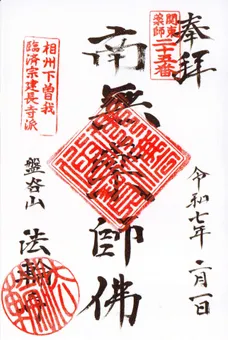 奉拝
関東
薬師
二十五番
令和七年 二月一日
南無薬師佛
相州下曽我
臨済宗建長寺派
盤谷山 法輪寺